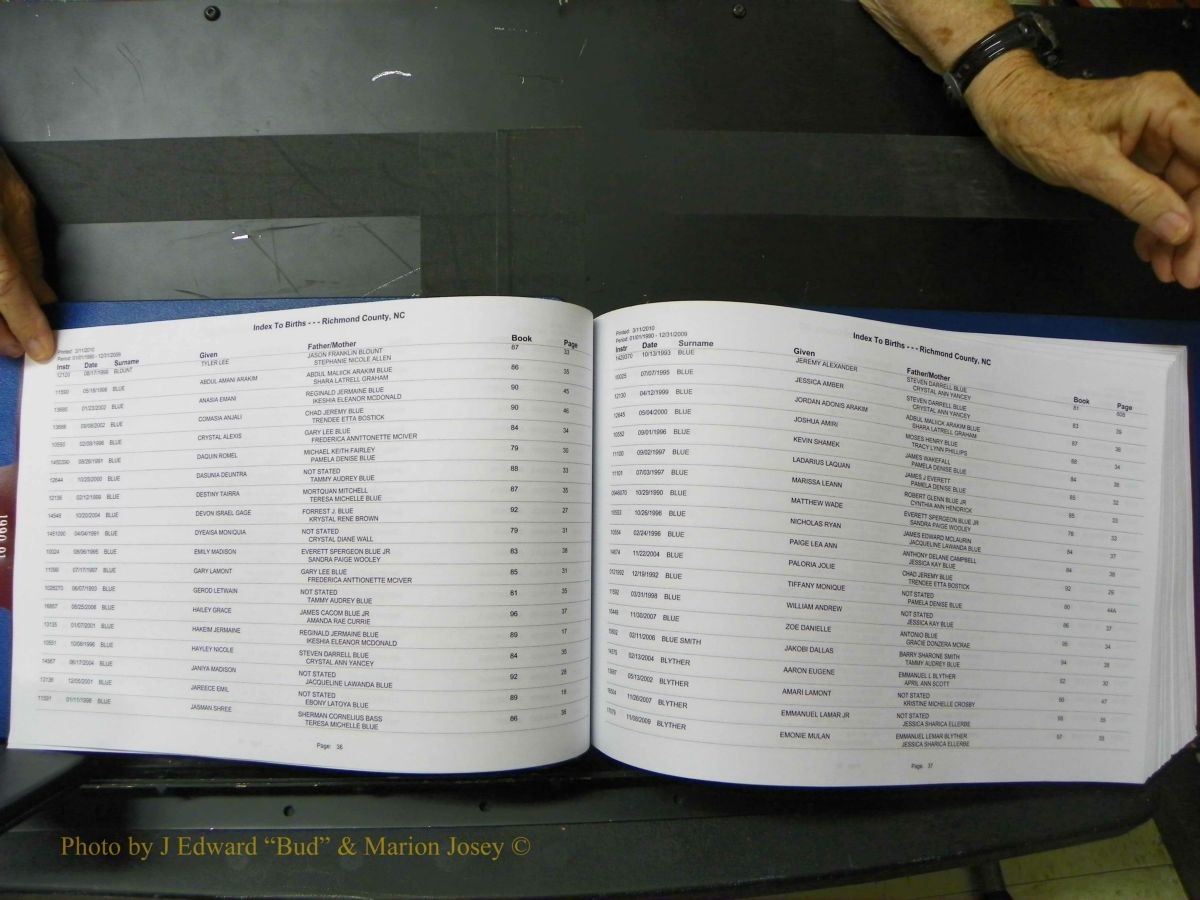 Index To Births - - - Richmond County, NC
Printed: 3/11/2010
Period: 01/01/1990 - 12/31/2009
Instr Date Surname Given Father/Mother Book Page
12120 08/17/1998 BLOUNT TYLER LEE JASON FRANKLIN BLOUNT 87 33
STEPHANIE NICOLE ALLEN
11590 05/18/1998 BLUE ABDUL AMANI ARAKIM ABDUL MALIICK ARAKIM BLUE 86 35
SHARA LATRELL GRAHAM
13680 01/23/2002 BLUE ANASIA EMANI REGINALD JERMAINE BLUE 90 45
IKESHIA ELEANOR MCDONALD
13686 09/08/2002 BLUE COMASIA ANJALI CHAD JEREMY BLUE 90 46
TRENDEE ETTA BOSTICK
10550 02/09/1996 BLUE CRYSTAL ALEXIS GARY LEE BLUE 84 34
FREDERICA ANNITTONETTE MCIVER
1450390 08/26/1991 BLUE DAQUIN ROMEL MICHAEL KEITH FAIRLEY 79 30
PAMELA DENISE BLUE
12644 10/20/2000 BLUE DASUNIA DEUNTRA NOT STATED 88 33
TAMMY AUDREY BLUE
12136 02/12/1999 BLUE DESTINY TAIRRA MORTQUAN MITCHELL 87 35
TERESA MICHELLE BLUE
14548 10/20/2004 BLUE DEVON ISRAEL GAGE FORREST J. BLUE 92 27
KRYSTAL RENE BROWN
1451290 04/04/1991 BLUE DYEAISA MONIQUIA NOT STATED 79 31
CRYSTAL DIANE WALL
10024 08/06/1995 BLUE EMILY MADISON EVERETT SPERGEON BLUE JR 83 38
SANDRA PAIGE WOOLEY
11099 07/17/1997 BLUE GARY LAMONT GARY LEE BLUE 85 31
FREDERICA ANTTIONETTE MCIVER
1028270 06/07/1993 BLUE GEROD LETWAIN NOT STATED 81 35
TAMMY AUDREY BLUE
08/25/2008 BLUE HAILEY GRACE JAMES CACOM BLUE JR 96 37
AMANDA RAE CURRIE
13135 01/07/2001 BLUE HAKEIM JERMAINE REGINALD JERMAINE BLUE 89 17
IKESHIA ELEANOR MCDONALD
10551 10/08/1996 BLUE HAYLEY NICOLE STEVEN DARRELL BLUE 84 35
CRYSTAL ANN YANCEY
14567 06/17/2004 BLUE JANIYA MADISON NOT STATED 92 28
JACQUELINE LAWANDA BLUE
13136 12/05/2001 BLUE JAREECE EMIL NOT STATED 89 18
EBONY LATOYA BLUE
11591 01/11/1998 BLUE JASMAN SHREE SHERMAN CORNELIUS BASS 86 36
TERESA MICHELLE BLUE
Page: 36
Index To Births - - - Richmond County, NC
Printed: 3/11/2010
Period: 01/01/1990 - 12/31/2009
Instr Date Surname Given Father/Mother Book Page
1429370 10/13/1993 BLUE JEREMY ALEXANDER STEVEN DARRELL BLUE 81 608
CRYSTAL ANN YANCEY
10025 07/07/1995 BLUE JESSICA AMBER STEVEN DARRELL BLUE 83 39
CRYSTAL ANN YANCEY
12130 04/12/1999 BLUE JORDAN ADONIS ARAKIM ADBUL MALICK ARAKIM BLUE 87 36
SHARA LATRELL GRAHAM
12645 05/04/2000 BLUE JOSHUA AMIRI MOSES HENRY BLUE 88 34
TRACY LYNN PHILLIPS
10552 09/01/1996 BLUE KEVIN SHAMEK JAMES WAKEFALL 84 36
PAMELA DENISE BLUE
11100 09/02/1997 BLUE LADARIUS LAQUAN JAMES J EVERETT 85 32
PAMELA DENISE BLUE
11101 07/03/1997 BLUE MARISSA LEANN ROBERT GLENN BLUE JR 85 33
CYNTHIA ANN HENDRICK
0946070 10/29/1990 BLUE MATTHEW WADE EVERETT SPERGEON BLUE JR 78 33
SANDRA PAIGE WOOLEY
10553 10/26/1996 BLUE NICHOLAS RYAN JAMES EDWARD MCLAURIN 84 37
JACQUELINE LAWANDA BLUE
10554 02/24/1996 BLUE PAIGE LEA ANN ANTHONY DELANE CAMPBELL 84 38
JESSICA KAY BLUE
14574 11/22/2004 BLUE PALORIA JOLIE CHAD JEREMY BLUE 92 29
TRENDEE ETTA BOSTICK
0121992 12/19/1992 BLUE TIFFANY MONIQUE NOT STATED 80 44A
PAMELA DENISE BLUE
11592 03/31/1998 BLUE WILLIAM ANDREW NOT STATED 86 37
JESSICA KAY BLUE
11/08/2007 BLUE ZOE DANIELLE ANTONIO BLUE 95 34
GRACIE DONZERA MCRAE
02/11/2006 BLUE SMITH JAKOBI DALLAS BARRY SHARONE SMITH 94 38
TAMMY AUDREY BLUE
02/13/2004 BLYTHER AARON EUGENE EMMANUEL L BLYTHER 92 30
APRIL ANN SCOTT
05/13/2002 BLYTHER AMARI LAMONT NOT STATED 90 47
KRISTINE MICHELLE CROSBY
11/26/2007 BLYTHER EMMANUEL LAMAR JR NOT STATED 95 35
JESSICA SHARICA ELLERBE
11/08/2009 BLYTHER EMONIE MULAN EMMANUEL LEMAR BLYTHER 97 33
JESSICA SHARICA ELLERBE
Page: 37
Photo by J Edward “Bud” & Marion Josey ©